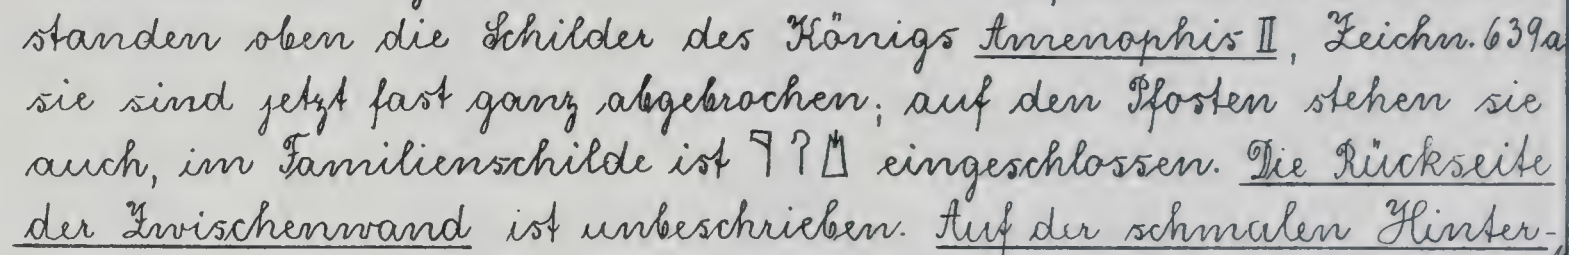 standen oben die Schilder des Königs Amenophis II, Zeichn. 639a
sie sind jetzt fast ganz abgebrochen; auf den Pfosten stehen sie
auch, im Familienschilde ist 𓊹𓋾𓉺 eingeschlossen. Die Rückseite
der Zwischenwand ist unbeschrieben. Auf der schmalen Hinter-